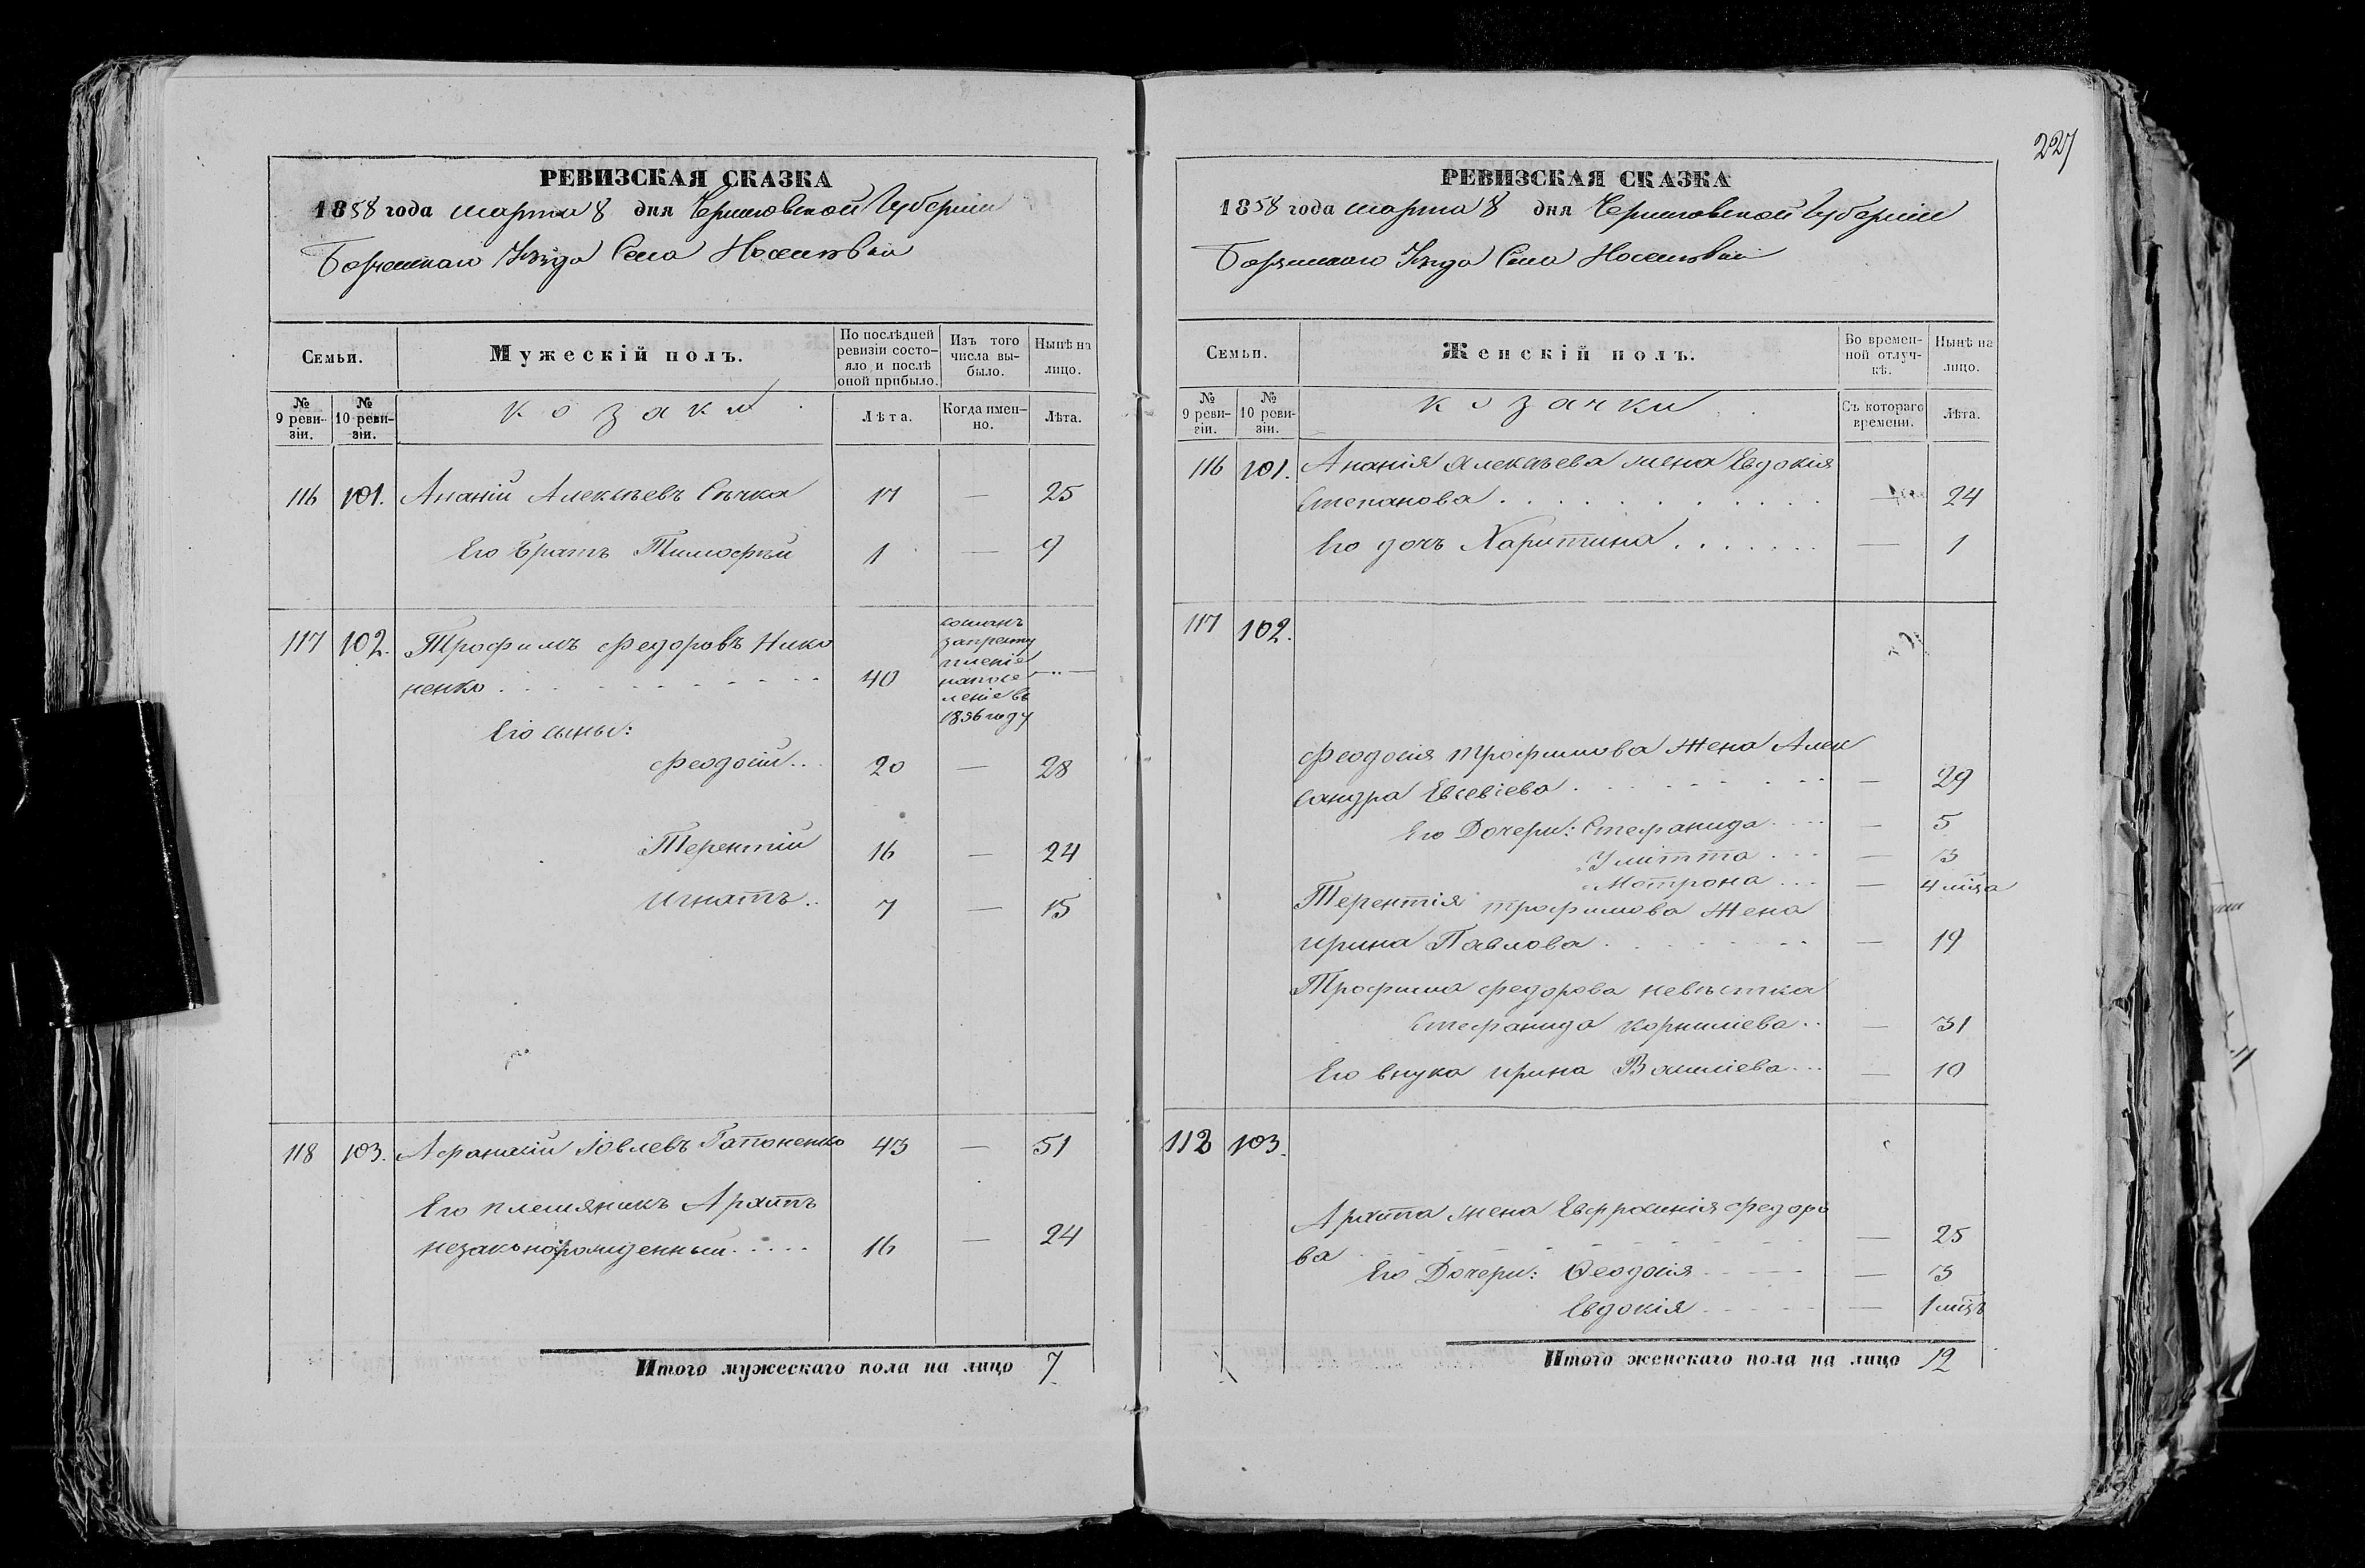 227
РЕВИЗСКАЯ СКАЗКА
1858 года марта 8 дня Черниговской Губерніи
Борзенскаго Уѣзда Села Носиловки
Семьи.
Мужескій полъ.
По послѣдней ревизіи состояло и послѣ оной прибыло.
Изъ того числа выбыло.
Нынѣ на лицо.
№ 9 ревизіи.
№ 10 ревизіи.
козаки
Лѣта.
Когда именно.
Лѣта.
116 101. Ананій Алексѣевъ Сѣчка 17 — 25
Его братъ Тимофѣй 1 — 9
117 102. Трофимъ Федоровъ Нико
ненко 40 — 
поселеніе въ
1856 году
Его сыны:
Феодосій 20 — 28
Терентій 16 — 24
Игнатъ 7 — 15
118 103. Афанасій Іовлевъ Гапоненко 43 — 51
Его племяникъ Архипъ
незаконорожденный 16 — 24
Итого мужескаго пола на лицо 7
РЕВИЗСКАЯ СКАЗКА
1858 года марта 8 дня Черниговской Губерніи
Борзенскаго Уѣзда Села Носиловки
Семьи.
Женскій полъ.
Во временной отлучкѣ.
Нынѣ на лицо.
№ 9 ревизіи.
№ 10 ревизіи.
козачки
Съ котораго времени.
Лѣта.
116 101. Ананія Алексѣева жена Евдокія
Степанова — 24
Его дочь Харитина — 1
117 102.
Феодосія Трофимова жена Алек
сандра Евсевіева — 29
Его Дочери: Стефанида — 5
Улитта — 3
Мотрона — 4 мѣся
Терентія Трофимова жена
Ирина Павлова — 19
Трофима Федорова невѣстка
Стефанида Корниліева — 31
Его внука Ирина Василіева — 10
112 103.
Архипа жена Евфросинія Федоро
ва — 25
Его Дочери: Ѳеодосія — 3
Евдокія — 1 мѣсъ
Итого женскаго пола на лицо 12